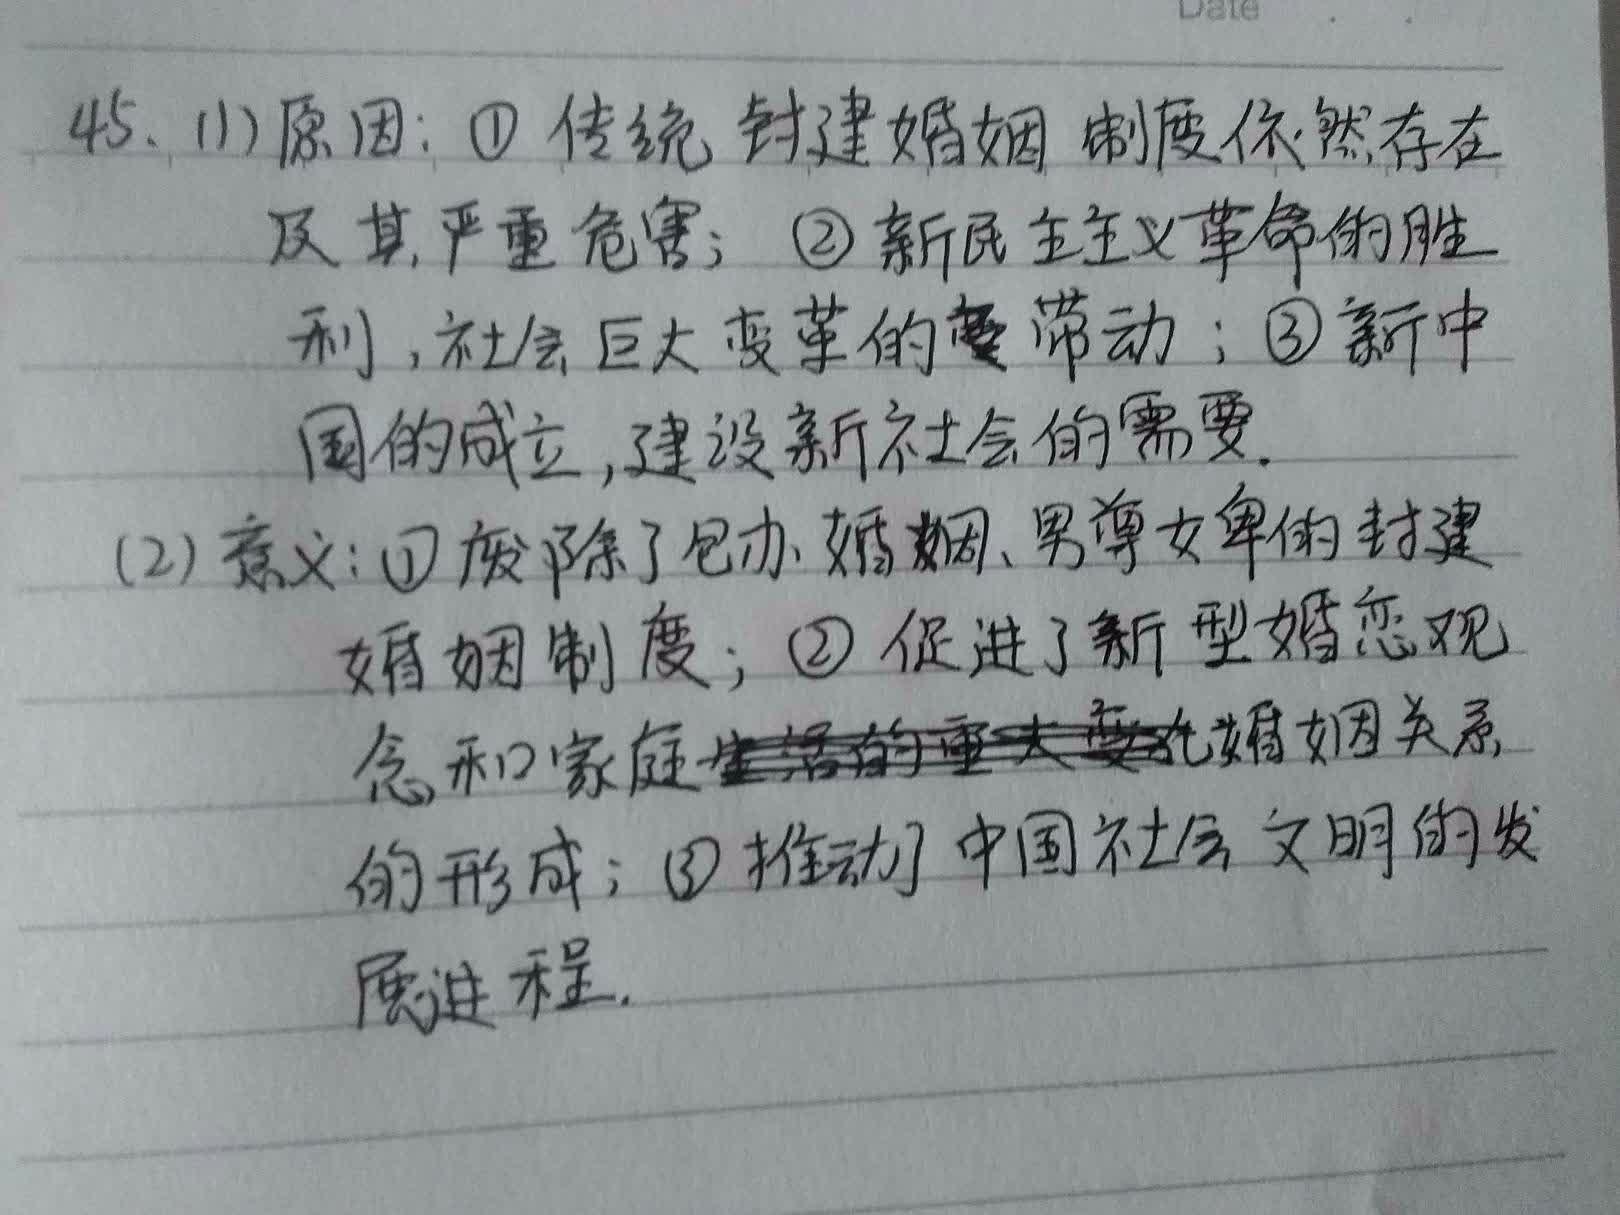 Date
45. (1)原因：① 传统封建婚姻制度依然存在
及其严重危害；②新民主主义革命的胜
利，社会巨大变革的带动；③新中
国的成立，建设新社会的需要.
(2)意义：①废除了包办婚姻、男尊女卑的封建
婚姻制度；②促进了新型婚恋观
念和家庭婚姻关系
的形成；③推动了中国社会文明的发
展进程.